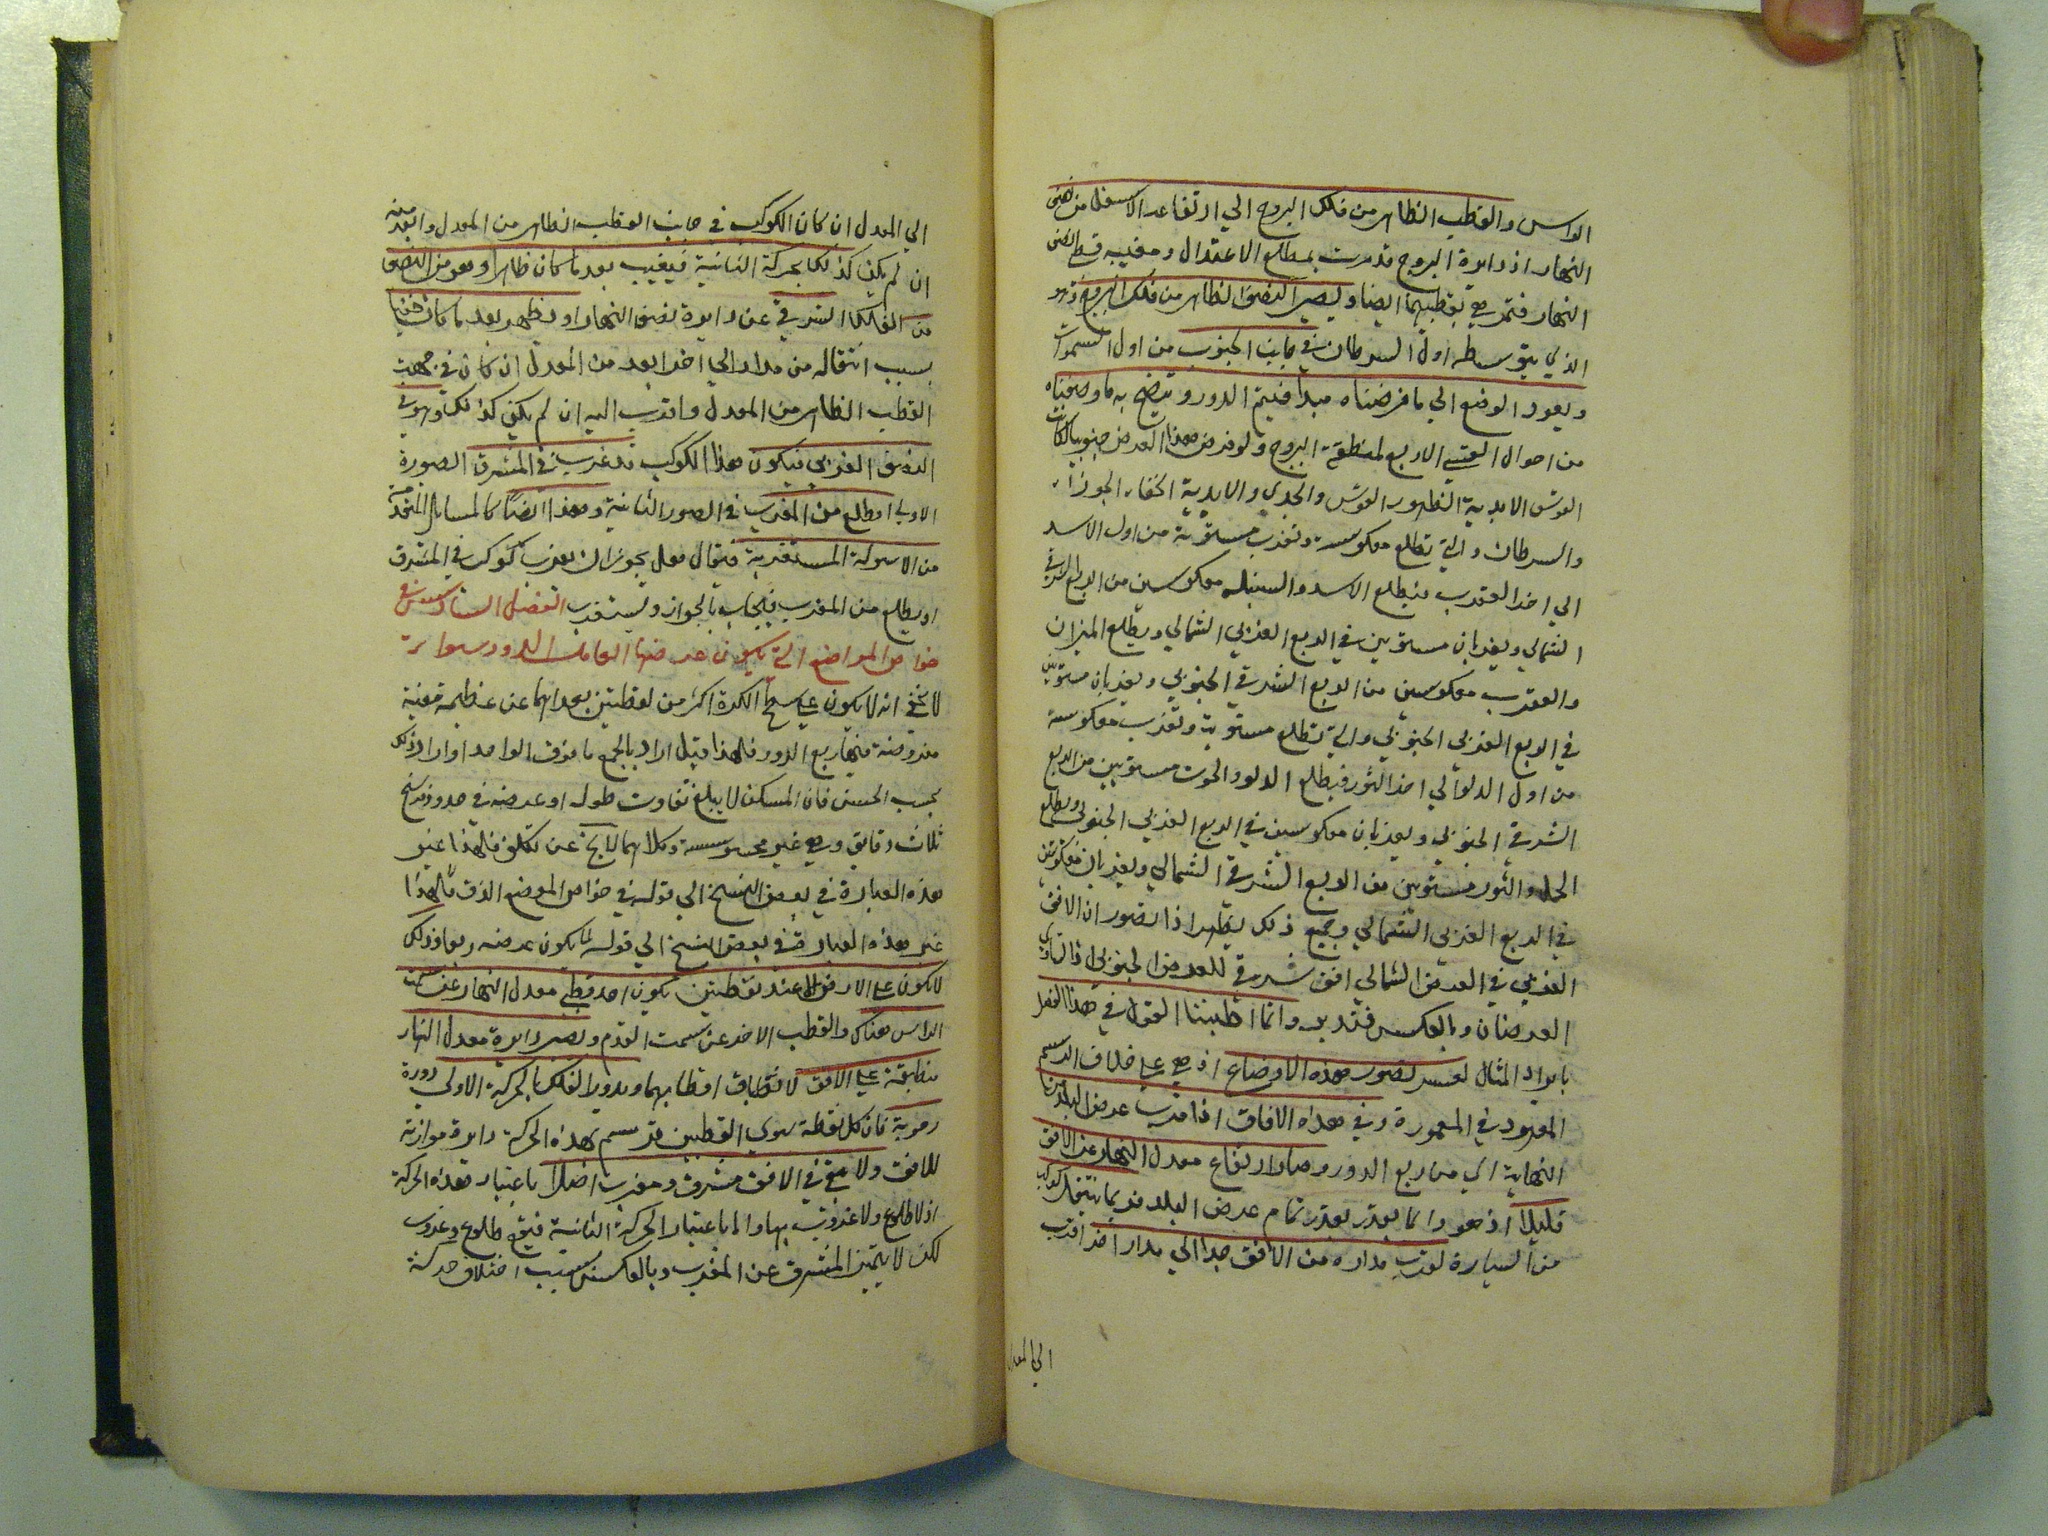 الراس والقطب الظاهر من فلك البروج الي ارتفاعه الاسفل من نصف
النهار اذ دايرة البروج قد مرت بمطلع الاعتدال ومغيبه فنصف
النهار فتمر هي بقطبيهما ايضا ويصير النصف الظاهر من فلك البروج
الذي يتوسطه اول السرطان في جانب الجنوب من اول السموت
ويعود الوضع الي ما فرضناه مبدأ فيتم الدور ويتضح به ما وصفناه
من احوال القسي الاربع لمنطقة البروج ولو فرض هذا العرض جنوبيا لكانت
القوس الابدية الظهور القوس والجدي والابدية الخفاء الجوزاء
والسرطان والتي تطلع معكوسة وتغرب مستوية من اول الاسد
الي اخر العقرب فيطلع الاسد والسنبلة معكوسين من الربع الشرقي
الشمالي ويغربان مستويين في الربع الغربي الشمالي ويطلع الميزان
والعقرب معكوسين من الربع الشرقي الجنوبي ويغربان مستويين
في الربع الغربي الجنوبي والتي تطلع مستوية وتغرب معكوسة
من اول الدلو الي اخر الثور فيطلع الدلو والحوت مستويين من الربع
الشرقي الجنوبي ويغربان معكوسين في الربع الغربي الجنوبي ويطلع
الحمل والثور مستويين من الربع الشرقي الشمالي ويغربان معكوسين
في الربع الغربي الشمالي وجميع ذلك يظهر اذا تصور ان الافق
الغربي في العرض الشمالي افق شرقي للعرض الجنوبي اذا تساوي
العرضان وبالعكس فتدبر وانما اطنبنا القول في هذا الفصل
بايراد المثال لعسر تصور هذه الاوضاع اذ هي علي خلاف الرسم
المعهود في المعمورة وفي هذه الافاق اذا قرب عرض البلد من
النهاية اي من ربع الدور وصار ارتفاع معدل النهار عن الافق
قليلا اذ هو دائما بقدر تمام عرض البلد فربما ينتقل كوكب
من السيارة لقرب مداره من الافق جدا الي مدار اخر اقرب
الي المعدل
الي المعدل ان كان الكوكب في جانب القطب الظاهر من المعدل وابعد منه
ان لم يكن كذلك بحركته الثانية فيغيب بعد ما كان ظاهرا وهو من النصف
من الفلك الشرقي عن دايرة نصف النهار او يظهر بعد ما كان خفيا
بسبب انتقاله من مدار الي اخر ابعد من المعدل ان كان في جهت
القطب الظاهر من المعدل واقرب اليه ان لم يكن كذلك وهو في
النصف الغربي فيكون هذا الكوكب قد غرب في المشرق الصورة
الاولي او طلع من المغرب في الصور الثانية وهذا ايضا كالمسايل المتقدمة
من الاسولة المستغربة فيقال هل يجوز ان يغرب كوكب في المشرق
او يطلع من المغرب فيجاب بالجواز ويستغرب الفصل السادس في
خواص المواضع التي يكون عرضها الدور سواء
لا يخفي انه لا يكون علي سطح الكرة اكثر من نقطتين بعداهما عن عظيمة معينة
مفروضة فيها ربع الدور فلهذا قيل اراد بالجمع ما فوق الواحد او اراد ذلك
بحسب الحس فان المسكن لا يبلغ تفاوت طوله او عرضه في حدود فرسخ
ثلاث دقايق وهي غير محسوسة وكلاهما لا يخ عن تكلف فلهذا غير
هذه العبارة في بعض النسخ الي قوله في خواص الموضع الذي فلهذا
غير هذه العبارة في بعض النسخ الي قوله ما يكون عرضه ربعا وذلك
لا يكون علي الارض الا عند نقطتين يكون احد قطبي معدل النهار عن سمت
الراس هناك والقطب الاخر عن سمت القدم ويصير دايرة معدل النهار
منطبقة علي الافق لانطباق اقطابهما ويدور الفلك بالحركة الاولي دورة
رحوية فان كل نقطة سوي القطبين ترسم بهذه الحركة دايرة موازية
للافق ولا يبقي في الافق مشرق ومغرب اصلا باعتبار هذه الحركة
اذ لا طلوع ولا غروب بها واما باعتبار الحركة الثانية فيقع طلوع وغروب
لكن لا يتميز المشرق عن المغرب وبالعكس بسبب اختلاف حركة